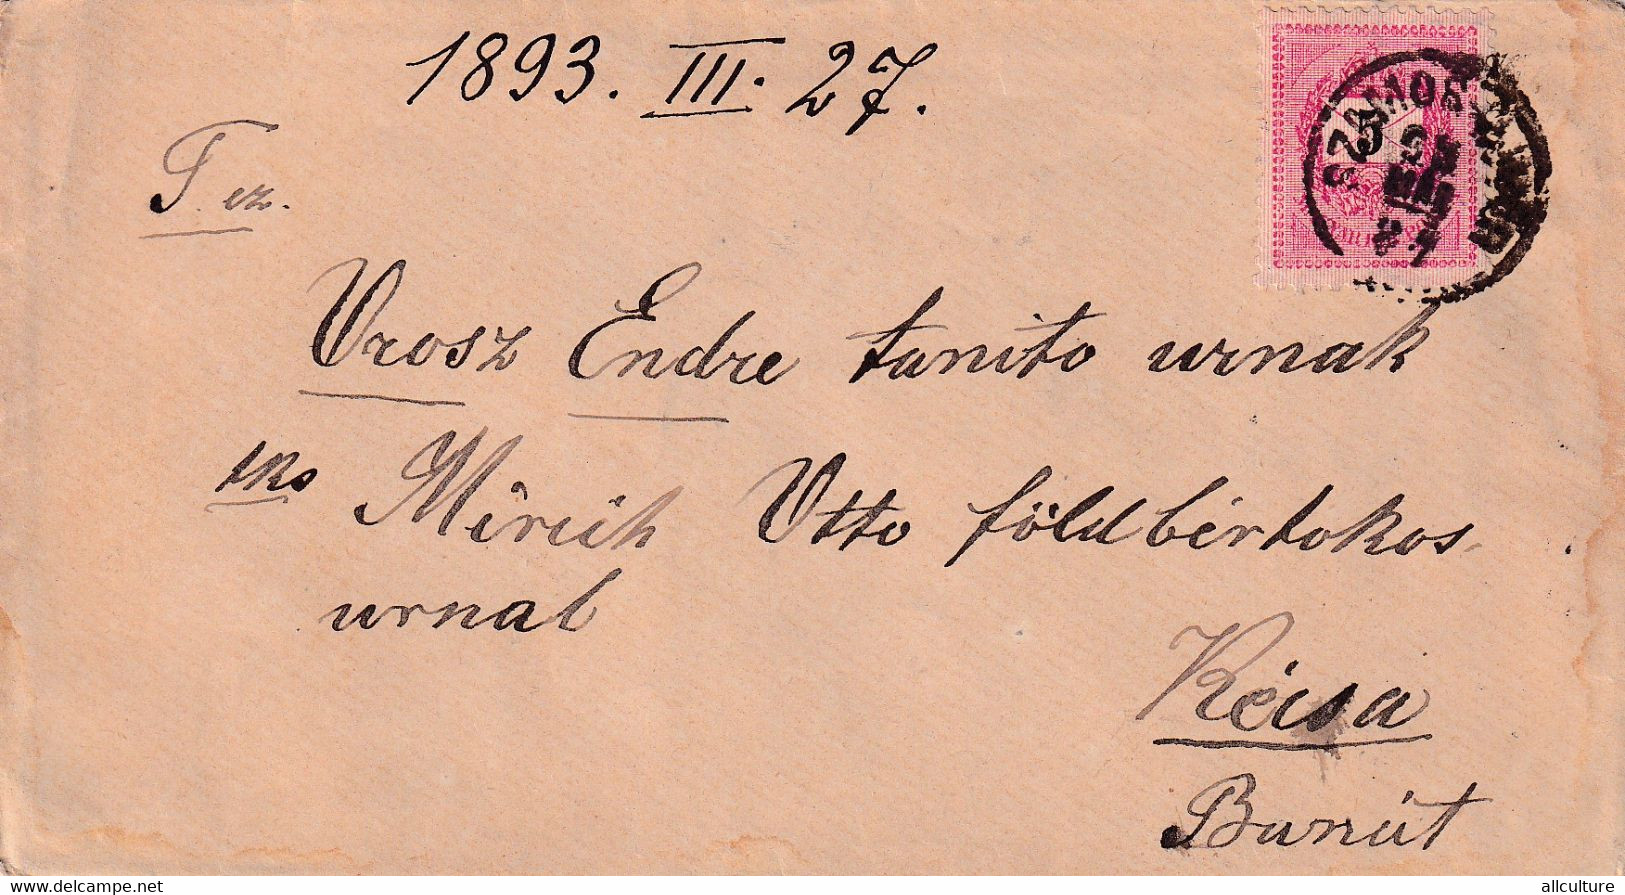 1893. III. 27.
T. cz.
Orosz Endre tanito urnak
tks Mircih Otto földbértokos
urnal
Kécsa
Banát
5
SZAMOS
93
III
27
delcampe.net
allculture